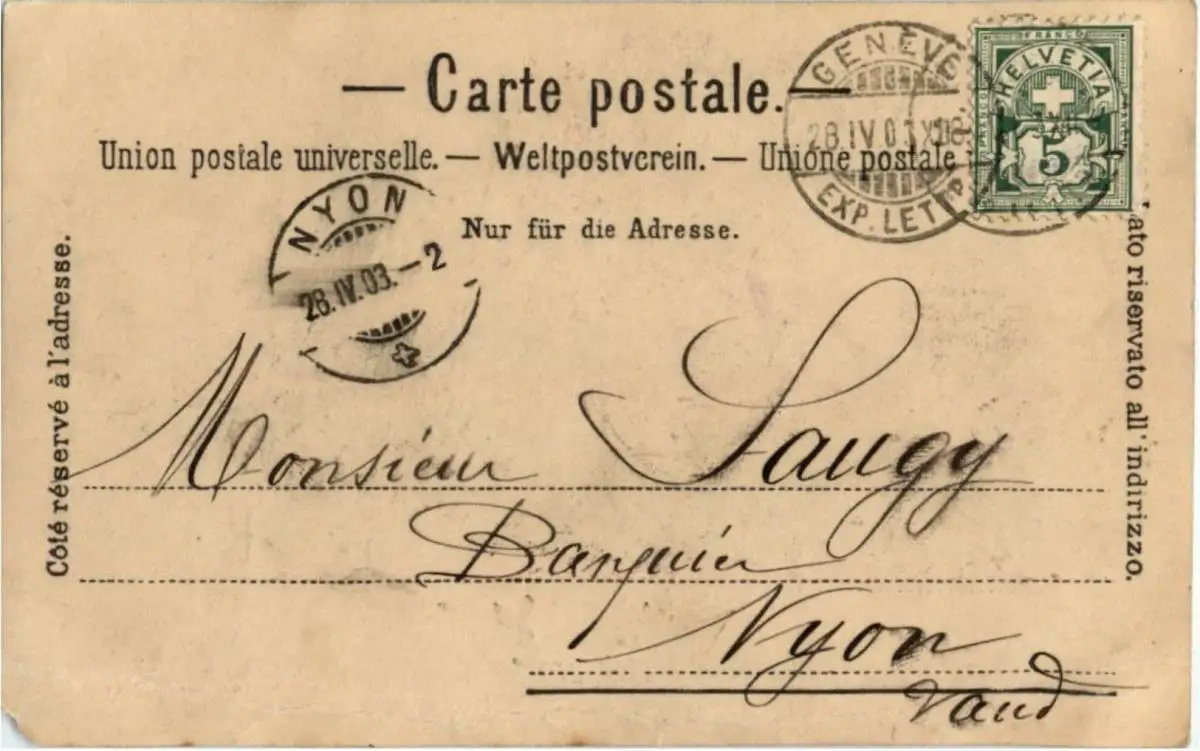 — Carte postale. —
Union postale universelle. — Weltpostverein. — Unione postale
Nur für die Adresse.
Côté réservé à l'adresse.
ato riservato all' indirizzo.
GENÈVE
28.IV.03.
EXP. LETT.
FRANCO
HELVETIA
5
NYON
28.IV.03.–2
Monsieur Saugy
Banquier
Nyon
Vaud